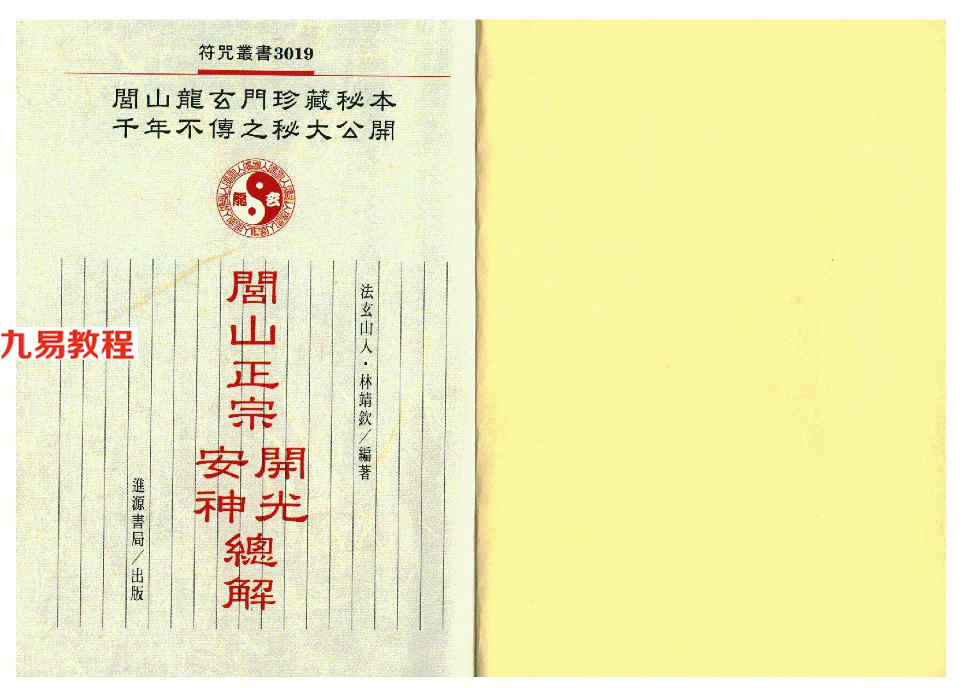 符咒叢書3019
閭山龍玄門珍藏秘本
千年不傳之秘大公開
龍 玄
閭山正宗
開光
安神
總解
法玄山人·林靖欽/編著
進源書局/出版
九易教程